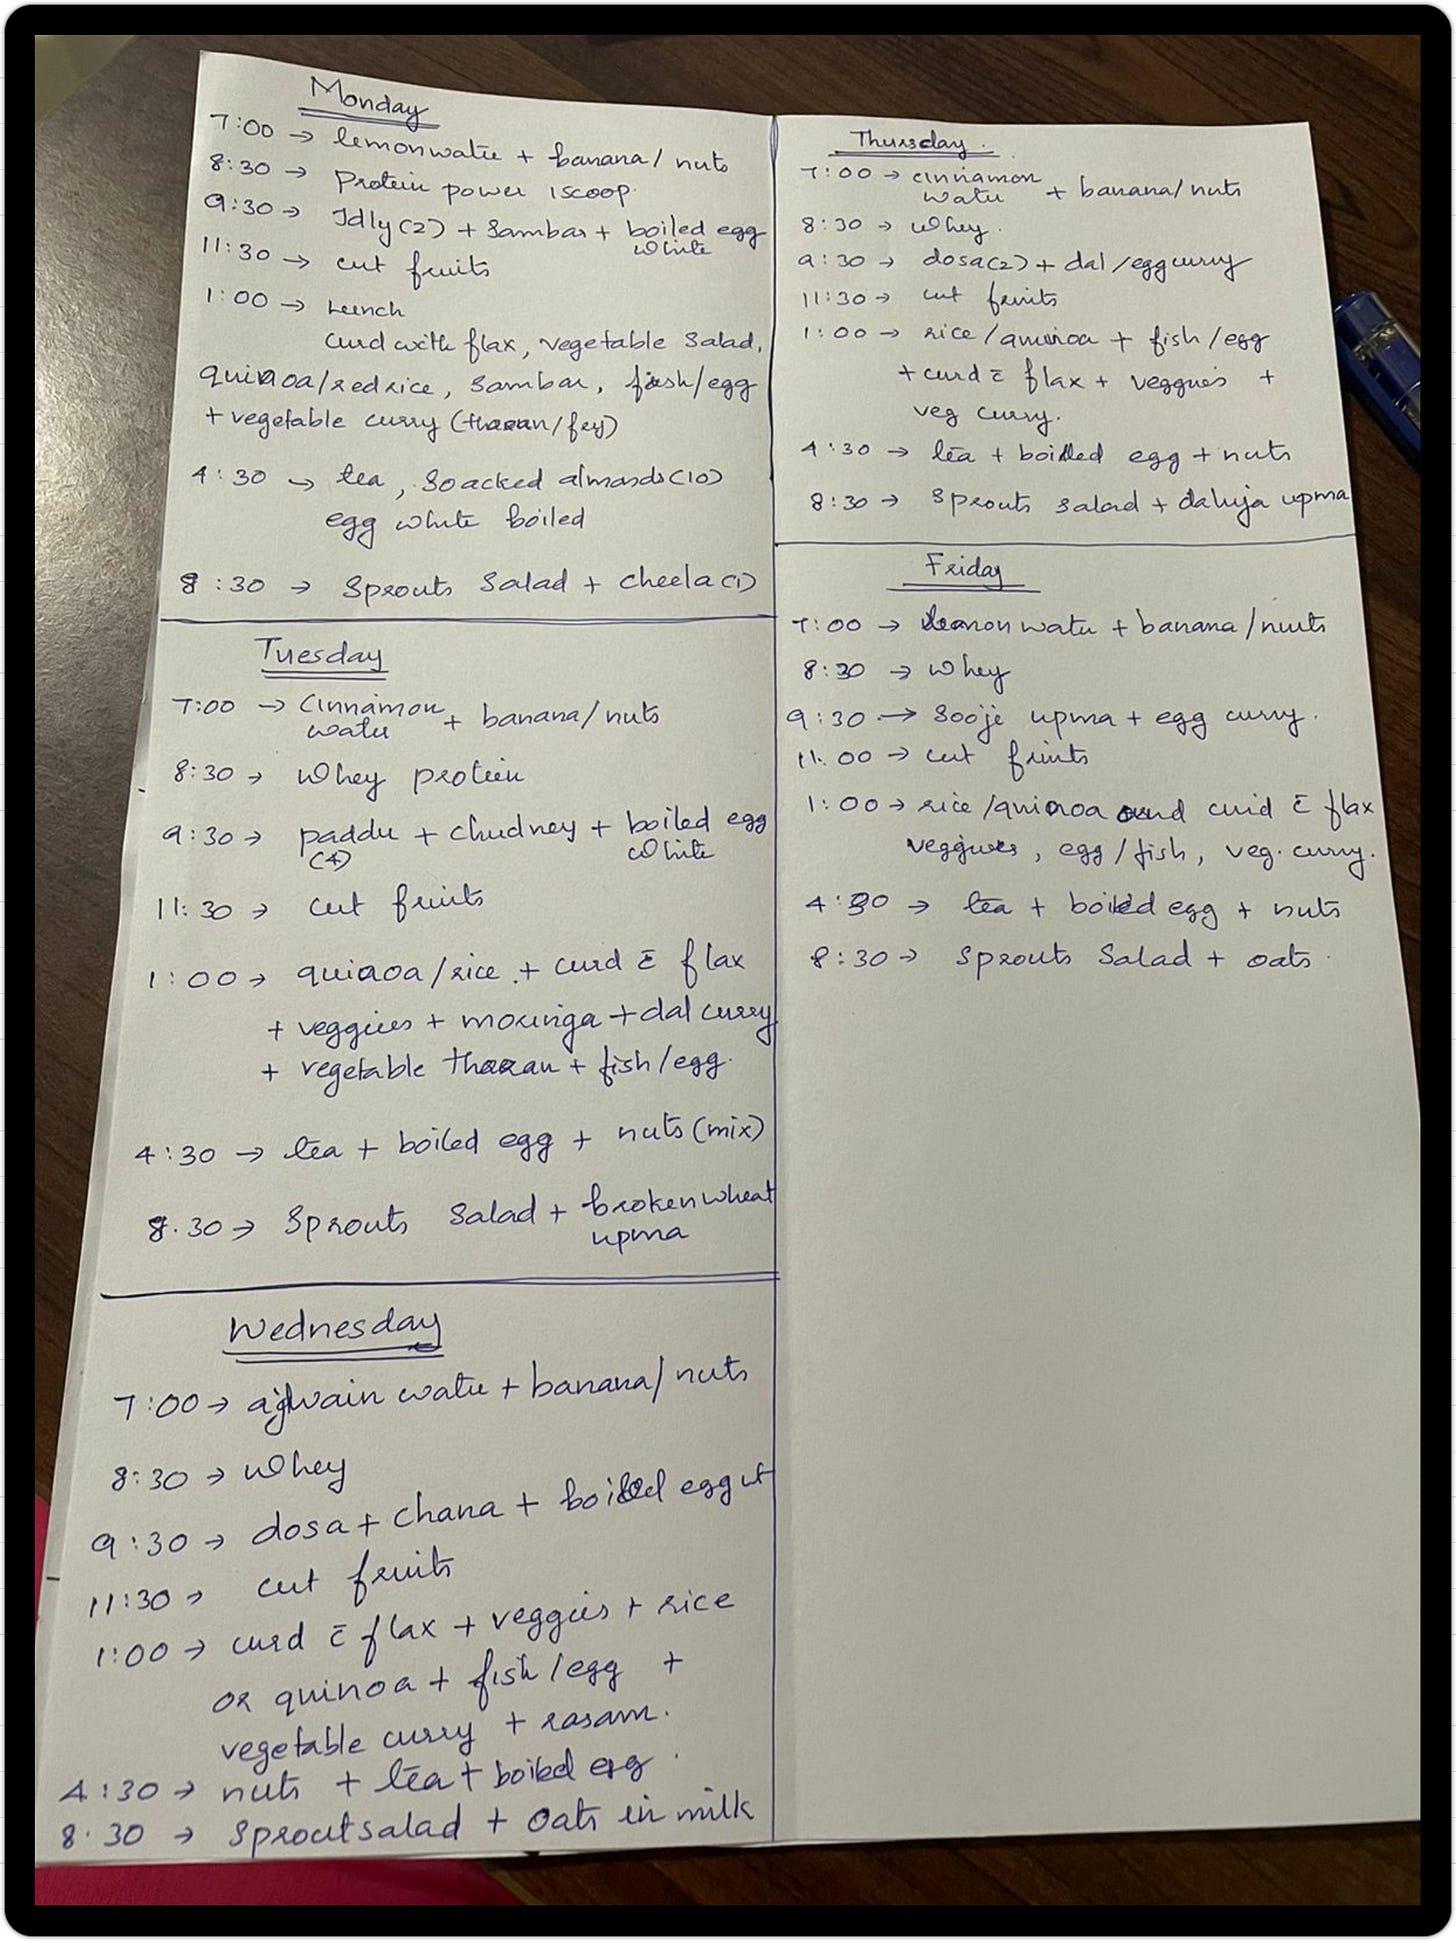 Monday
7:00 → lemonwater + banana/nuts
8:30 → Protein power 1scoop.
9:30 → Idly(2) + Sambar + boiled egg
white
11:30 → cut fruits
1:00 → Lunch
curd with flax, vegetable Salad,
quinoa/redrice, Sambar, fish/egg
+ vegetable curry (thoran/fry)
4:30 → tea, Soacked almonds(10)
egg white boiled
8:30 → Sprouts Salad + Cheela(1)
Tuesday
7:00 → Cinnamon + banana/nuts
water
8:30 → Whey protein
9:30 → paddu + chudney + boiled egg
(4) white
11:30 → cut fruits
1:00 → quinoa/rice + curd c̄ flax
+ veggies + moringa + dal curry
+ vegetable thoran + fish/egg.
4:30 → tea + boiled egg + nuts (mix)
8.30 → Sprouts Salad + broken wheat
upma
Wednesday
7:00 → ajwain water + banana/nuts
8:30 → Whey
9:30 → dosa + Chana + boiled egg
11:30 → cut fruits
1:00 → curd c̄ flax + veggies + rice
or quinoa + fish/egg +
vegetable curry + rasam.
4:30 → nuts + tea + boiled egg.
8.30 → Sproutsalad + Oats in milk
Thursday.
7:00 → cinnamon + banana/nuts
water
8:30 → Whey.
9:30 → dosa(2) + dal/eggcurry
11:30 → cut fruits
1:00 → rice/quinoa + fish/egg
+ curd c̄ flax + veggies +
veg curry.
4:30 → tea + boiled egg + nuts
8:30 → Sprouts Salad + upma
Friday
7:00 → lemon water + banana/nuts
8:30 → Whey
9:30 → Sooji upma + egg curry.
11.00 → cut fruits
1:00 → rice/quinoa and curd c̄ flax
veggies, egg/fish, veg. curry.
4:30 → tea + boiled egg + nuts
8:30 → Sprouts Salad + oats.